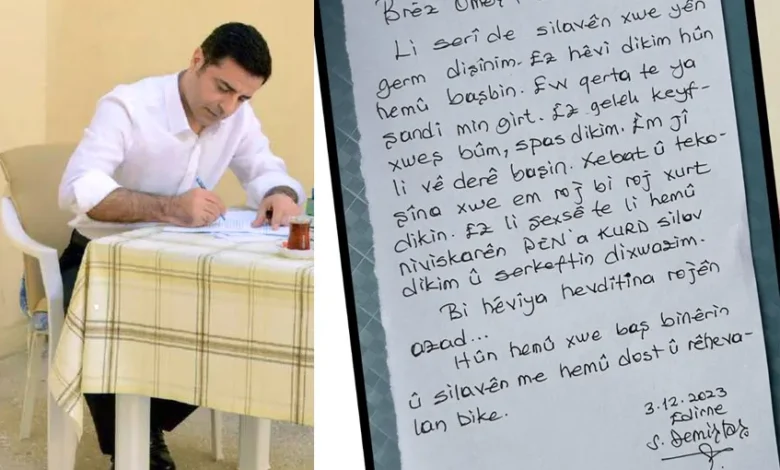 Brêz Omer
Li serî de silavên xwe yên
germ dişînim. Ez hêvî dikim hûn
hemû başbin. Ew qerta te ya
şandi min girt. Ez gelek keyf-
xweş bûm, spas dikim. Em jî
li vê derê başin. Xebat û teko-
şîna xwe em roj bi roj xurt
dikin. Ez li şexsê te li hemû
nivîskarên PEN'a KURD silav
dikim û serkeftin dixwazim.
Bi hêviya hevdîtina rojên
azad...
Hûn hemû xwe baş binêrin
û silavên me hemû dost û rêheva-
lan bike.
3.12.2023
Edirne
S. Demirtaş